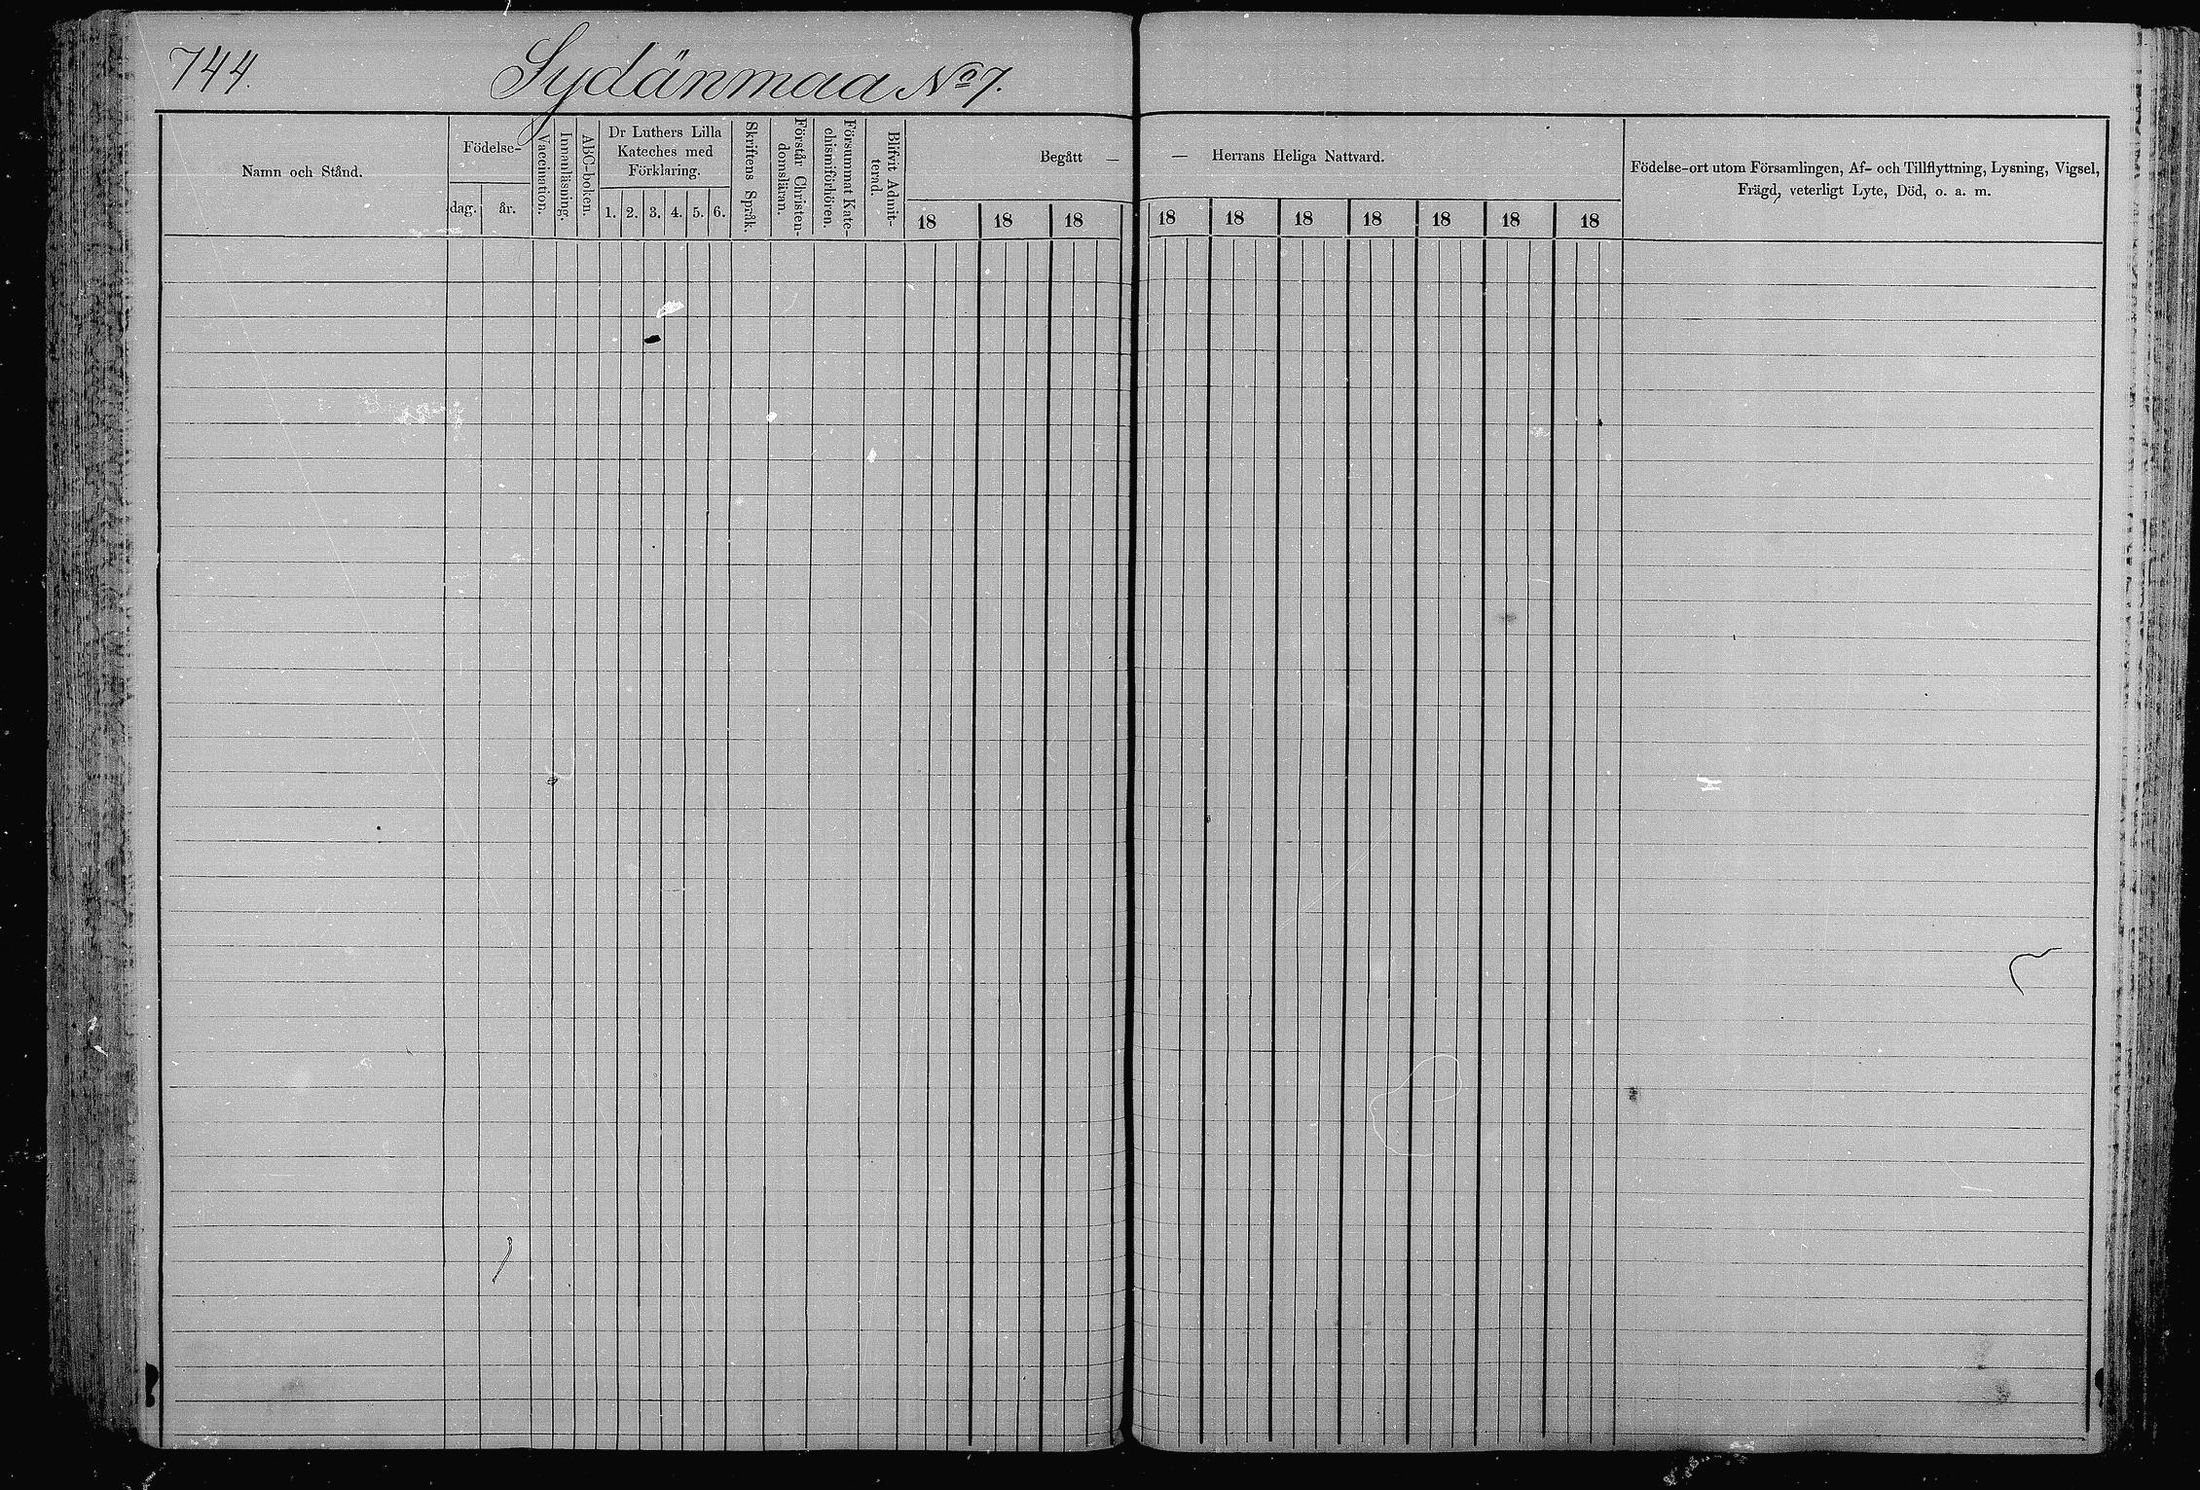 744.
Sydänmaa No 7.
Namn och Stånd.
Födelse-
dag.
år.
Vaccination.
Innanläsning.
ABC-boken.
Dr Luthers Lilla
Kateches med
Förklaring.
1. 2. 3. 4. 5. 6.
Skriftens Språk.
Förstår Christen-
domsläran.
Försummat Kate-
chismiförhören.
Blifvit Admit-
terad.
Begått —
— Herrans Heliga Nattvard.
18 18 18 18 18 18 18 18 18 18
Födelse-ort utom Församlingen, Af- och Tillflyttning, Lysning, Vigsel,
Frägd, veterligt Lyte, Död, o. a. m.